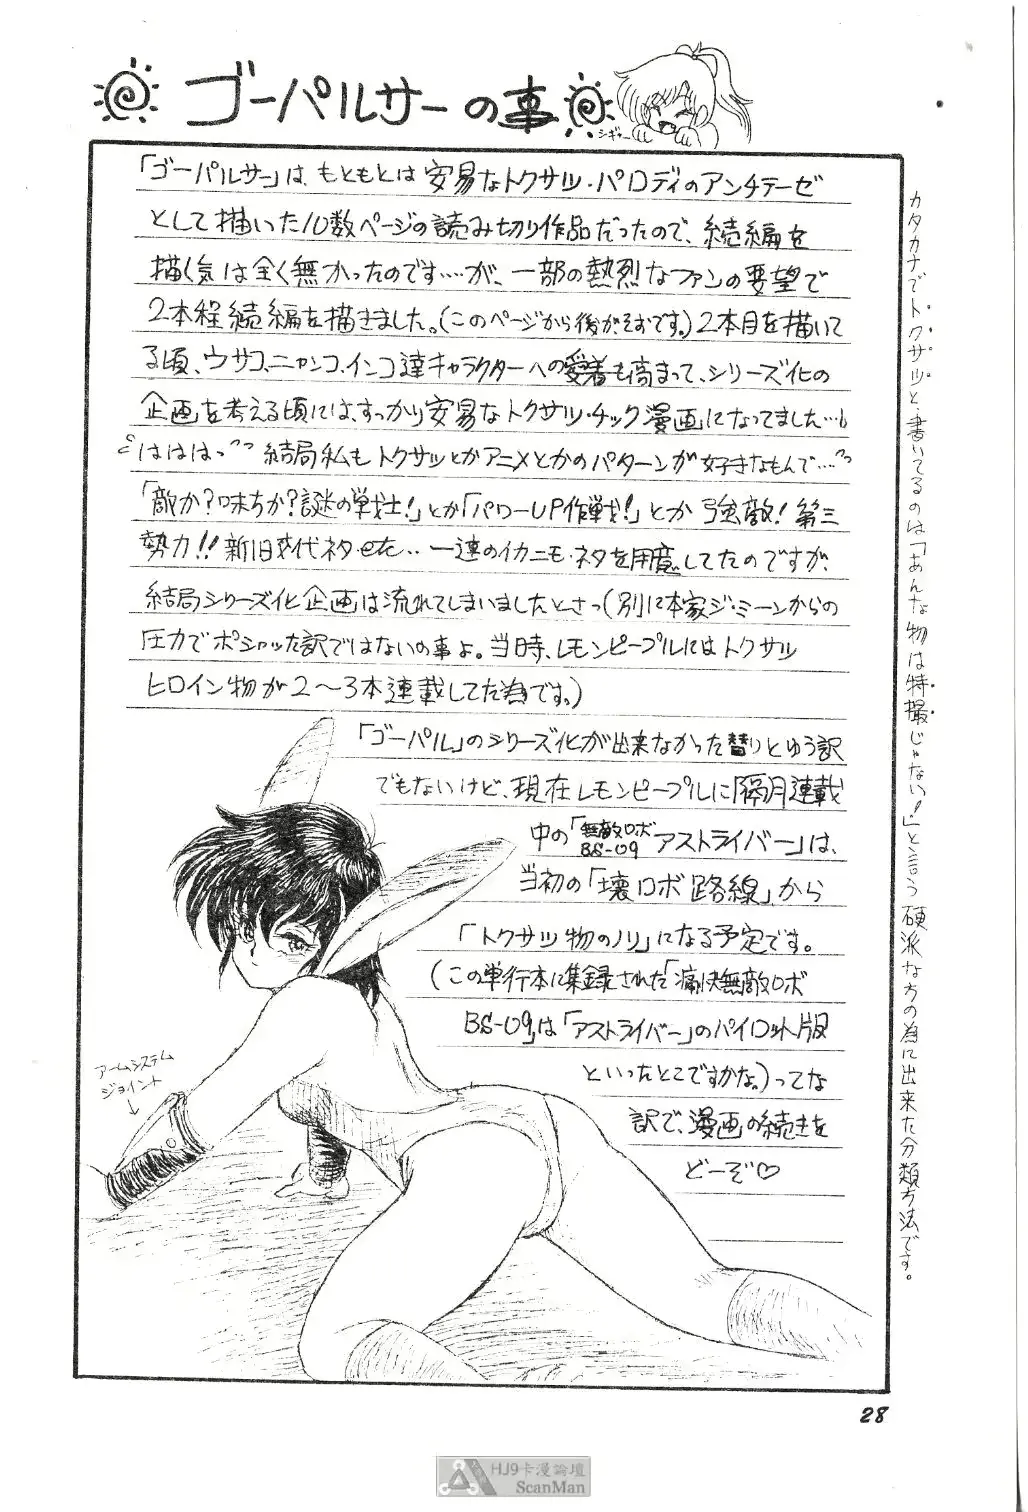 ゴーパルサーの事
シギャー
「ゴーパルサー」は、もともとは安易なトクサツ・パロディのアンチテーゼ
として描いた10数ページの読み切り作品だったので、続編を
描く気は全く無かったのです…が、一部の熱烈なファンの要望で
2本程続編を描きました。(このページから後がそおです。)2本目を描いて
る頃、ウサコ、ニャンコ、インコ達キャラクターへの愛着も高まって、シリーズ化の
企画を考える頃には、すっかり安易なトクサツ・チック漫画になってました…
はははっ 結局私もトクサツとかアニメとかのパターンが好きなもんで…
「敵か?味方か?謎の戦士!」とか「パワーUP作戦!」とか強敵!第三
勢力!!新旧交代ネタetc… 一連のイカニモ・ネタを用意してたのですが、
結局シリーズ化企画は流れてしまいましたとさっ(別に本家ジ・ミーンからの
圧力でポシャッた訳ではないの事よ。当時、レモンピープルにはトクサツ
ヒロイン物が2〜3本連載してた為です。)
「ゴーパル」のシリーズ化が出来なかった替りとゆう訳
でもないけど、現在レモンピープルに隔月連載
中の「無敵ロボBS-09アストライバー」は、
当初の「壊ロボ路線」から
「トクサツ物のノリ」になる予定です。
(この単行本に集録された「痛快無敵ロボ
BS-09」は「アストライバー」のパイロット版
といったとこですかな。)ってな
訳で、漫画の続きを
どーぞ♡
アームシステム
ジョイント
カタカナでトクサツと書いてるのは「あんな物は特撮じゃない!」と言う硬派な方の為に出来た分類方法です。
28
HJ9卡漫論壇
ScanMan